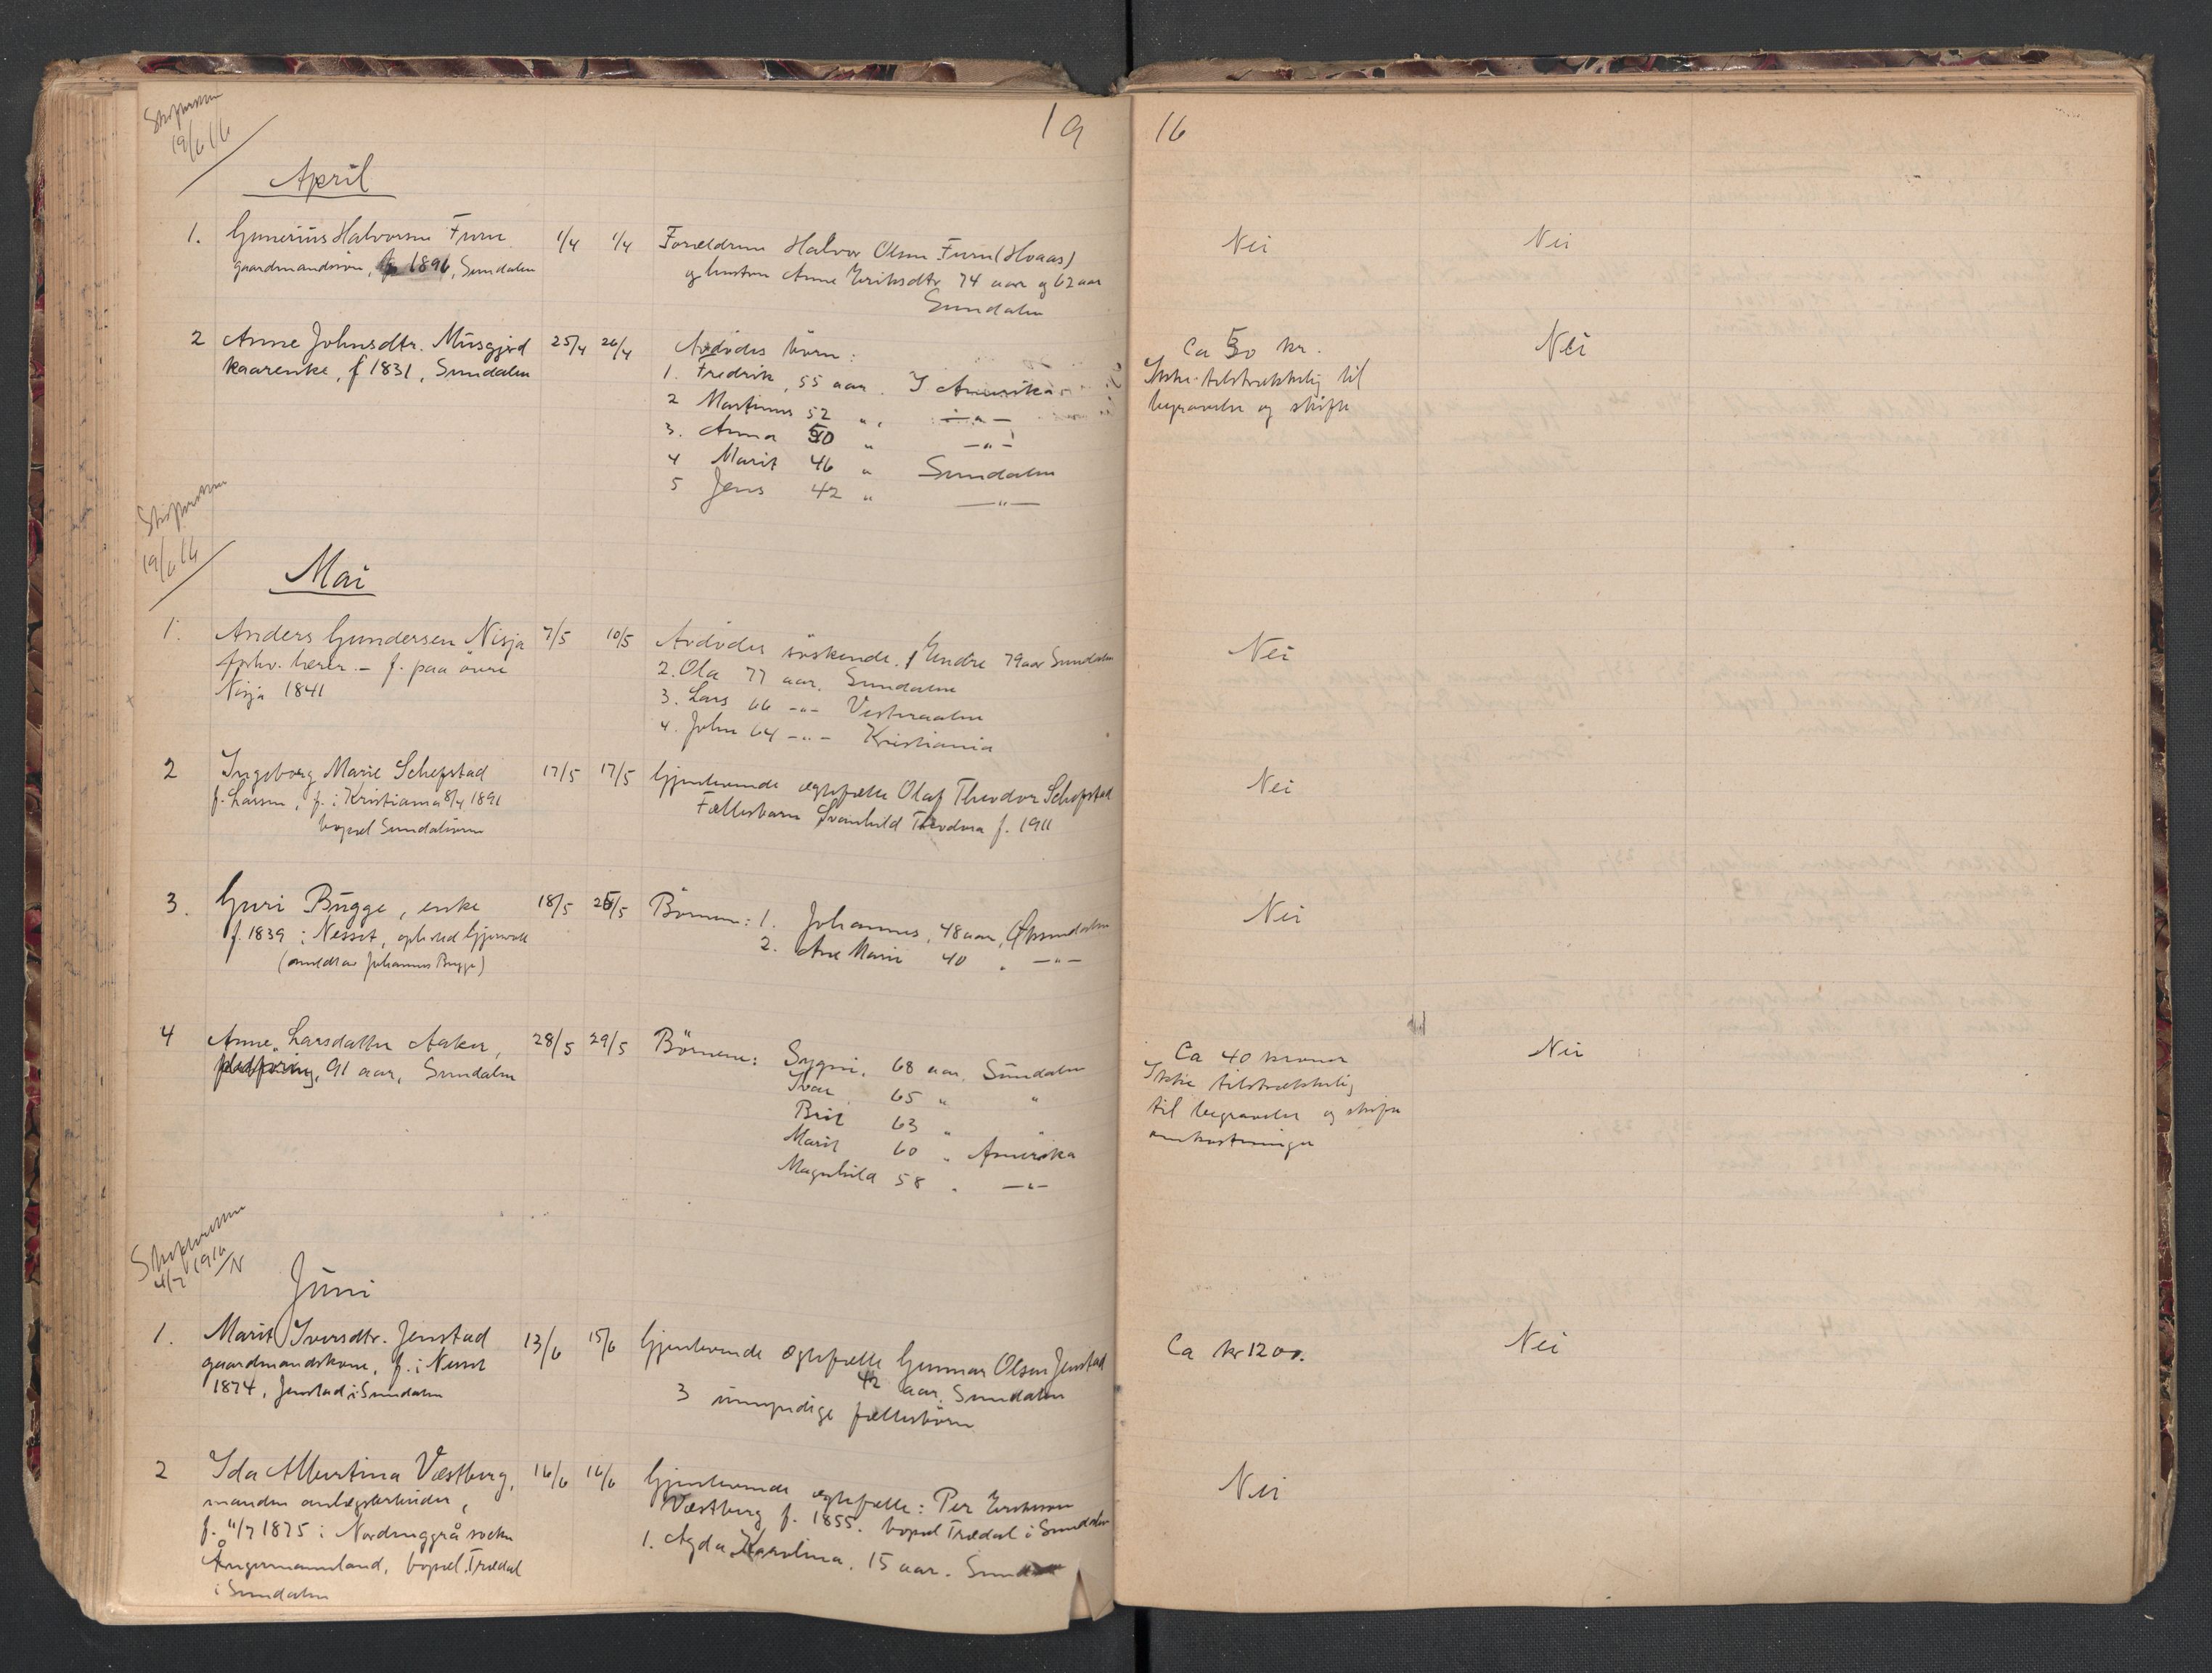 19
16
19/6 16
April
1. Gunerius Halvorsen Furu
gaardmandssøn, f. 1896, Sundalen
1/4
1/4
Forældrene Halvor Olsen Furu (Hoaas)
og hustru Anne Eriksdtr. 74 aar og 62 aar
Sundalen
Nei
Nei
2 Anne Johnsdtr. Musgjerd
kaarenke, f 1831, Sundalen
25/4
26/4
Avdødes børn:
1. Fredrik, 55 aar. I Amerika
2 Martinus 52 " —"—
3. Anna 50 " —"—
4 Marit 46 " Sundalen
5 Jens 42 " —"—
Ca 50 kr.
Ikke tilstrækkelig til
begravelse og skifte
Nei
19/6 16
Mai
1. Anders Gundersen Nisja
forhv. lærer. – f. paa øvre
Nisja 1841
7/5
10/5
Avdødes søskende. 1 Endre 79 aar Sundalen
2. Ola 77 aar. Sundalen
3. Lars 66 –"– Vesteraalen
4. John 64 –"– Kristiania
Nei
2 Ingeborg Marie Schefstad
f. Larsen, f. i Kristiania 8/4 1891
bopæl Sundalsøren
17/5
17/5
Gjenlevende ægtefælle Olaf Theodor Schefstad
Fællesbarn Svanhild Theodora f. 1911
Nei
3. Guri Bugge, enke
f. 1839 i Nesset, ophold Gjøravold
(anmeldt av Johannes Bugge)
18/5
25/5
Børnene: 1. Johannes, 48 aar, Øksendalen
2. Ane Marie 40 " —"—
Nei
4 Anne Larsdatter Aaker,
91 aar, Sundalen
28/5
29/5
Børnene: Sygni, 68 aar, Sundalen
Ivar 65 " "
Brit 63 " "
Marit 60 " Amerika
Magnhild 58 " —"—
Ca 40 kroner
Ikke tilstrækkelig
til begravelse og skifte
omkostninger
Nei
4/7 1916/N
Juni
1. Marit Iversdtr. Jenstad
gaardmandskone, f. i Nesset
1874, Jenstad i Sundalen
13/6
15/6
Gjenlevende ægtefælle Gunnar Olsen Jenstad
42 aar, Sundalen
3 umyndige fællesbørn
Ca kr 1200.
Nei
2 Ida Albertina Væstberg,
manden anlægsarbeider,
f. 11/7 1875 i Nordinggrå socken
Ångermanland, bopæl Trædal
i Sundalen
16/6
16/6
Gjenlevende ægtefælle: Per Eriksson
Væstberg f. 1855. bopæl Trædal i Sundalen
1. Agda Karolina. 15 aar.
Nei